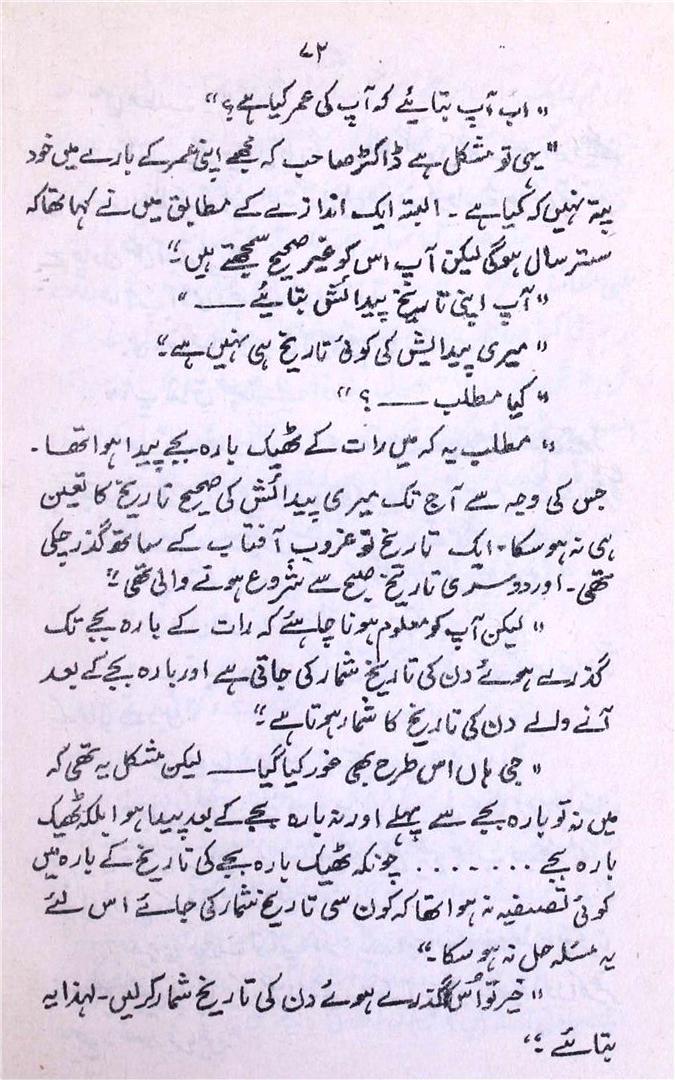 ۷۲
" اب آپ بتائیے کہ آپ کی عمر کیا ہے ؟ "
" یہی تو مشکل ہے ڈاکٹر صاحب کہ مجھے اپنی عمر کے بارے میں خود
پتہ نہیں کہ کیا ہے ۔ البتہ ایک اندازے کے مطابق میں نے کہا تھا کہ
ستر سال ہوگی لیکن آپ اس کو غیر صحیح سمجھتے ہیں ۔"
" آپ اپنی تاریخ پیدائش بتائیے ــــ "
" میری پیدایش کی کوئی تاریخ ہی نہیں ہے ۔"
" کیا مطلب ــــ ؟ "
" مطلب یہ کہ میں رات کے ٹھیک بارہ بجے پیدا ہوا تھا ۔
جس کی وجہ سے آج تک میری پیدائش کی صحیح تاریخ کا تعین
ہی نہ ہو سکا ۔ ایک تاریخ تو غروب آفتاب کے ساتھ گذر چکی
تھی ۔ اور دوسری تاریخ صبح سے شروع ہونے والی تھی ۔"
" لیکن آپ کو معلوم ہونا چاہئے کہ رات کے بارہ بجے تک
گذرے ہوئے دن کی تاریخ شمار کی جاتی ہے اور بارہ بجے کے بعد
آنے والے دن کی تاریخ کا شمار ہوتا ہے ۔"
" جی ہاں اس طرح بھی غور کیا گیا ــــ لیکن مشکل یہ تھی کہ
میں نہ تو بارہ بجے سے پہلے اور نہ بارہ بجے کے بعد پیدا ہوا بلکہ ٹھیک
بارہ بجے ....... چونکہ ٹھیک بارہ بجے کی تاریخ کے بارہ میں
کوئی تصفیہ نہ ہوا تھا کہ کون سی تاریخ شمار کی جائے اس لئے
یہ مسئلہ حل نہ ہو سکا ۔"
" خیر تو اُس گذرے ہوئے دن کی تاریخ شمار کرلیں ۔ لہذا یہ
بتائیے ۔"